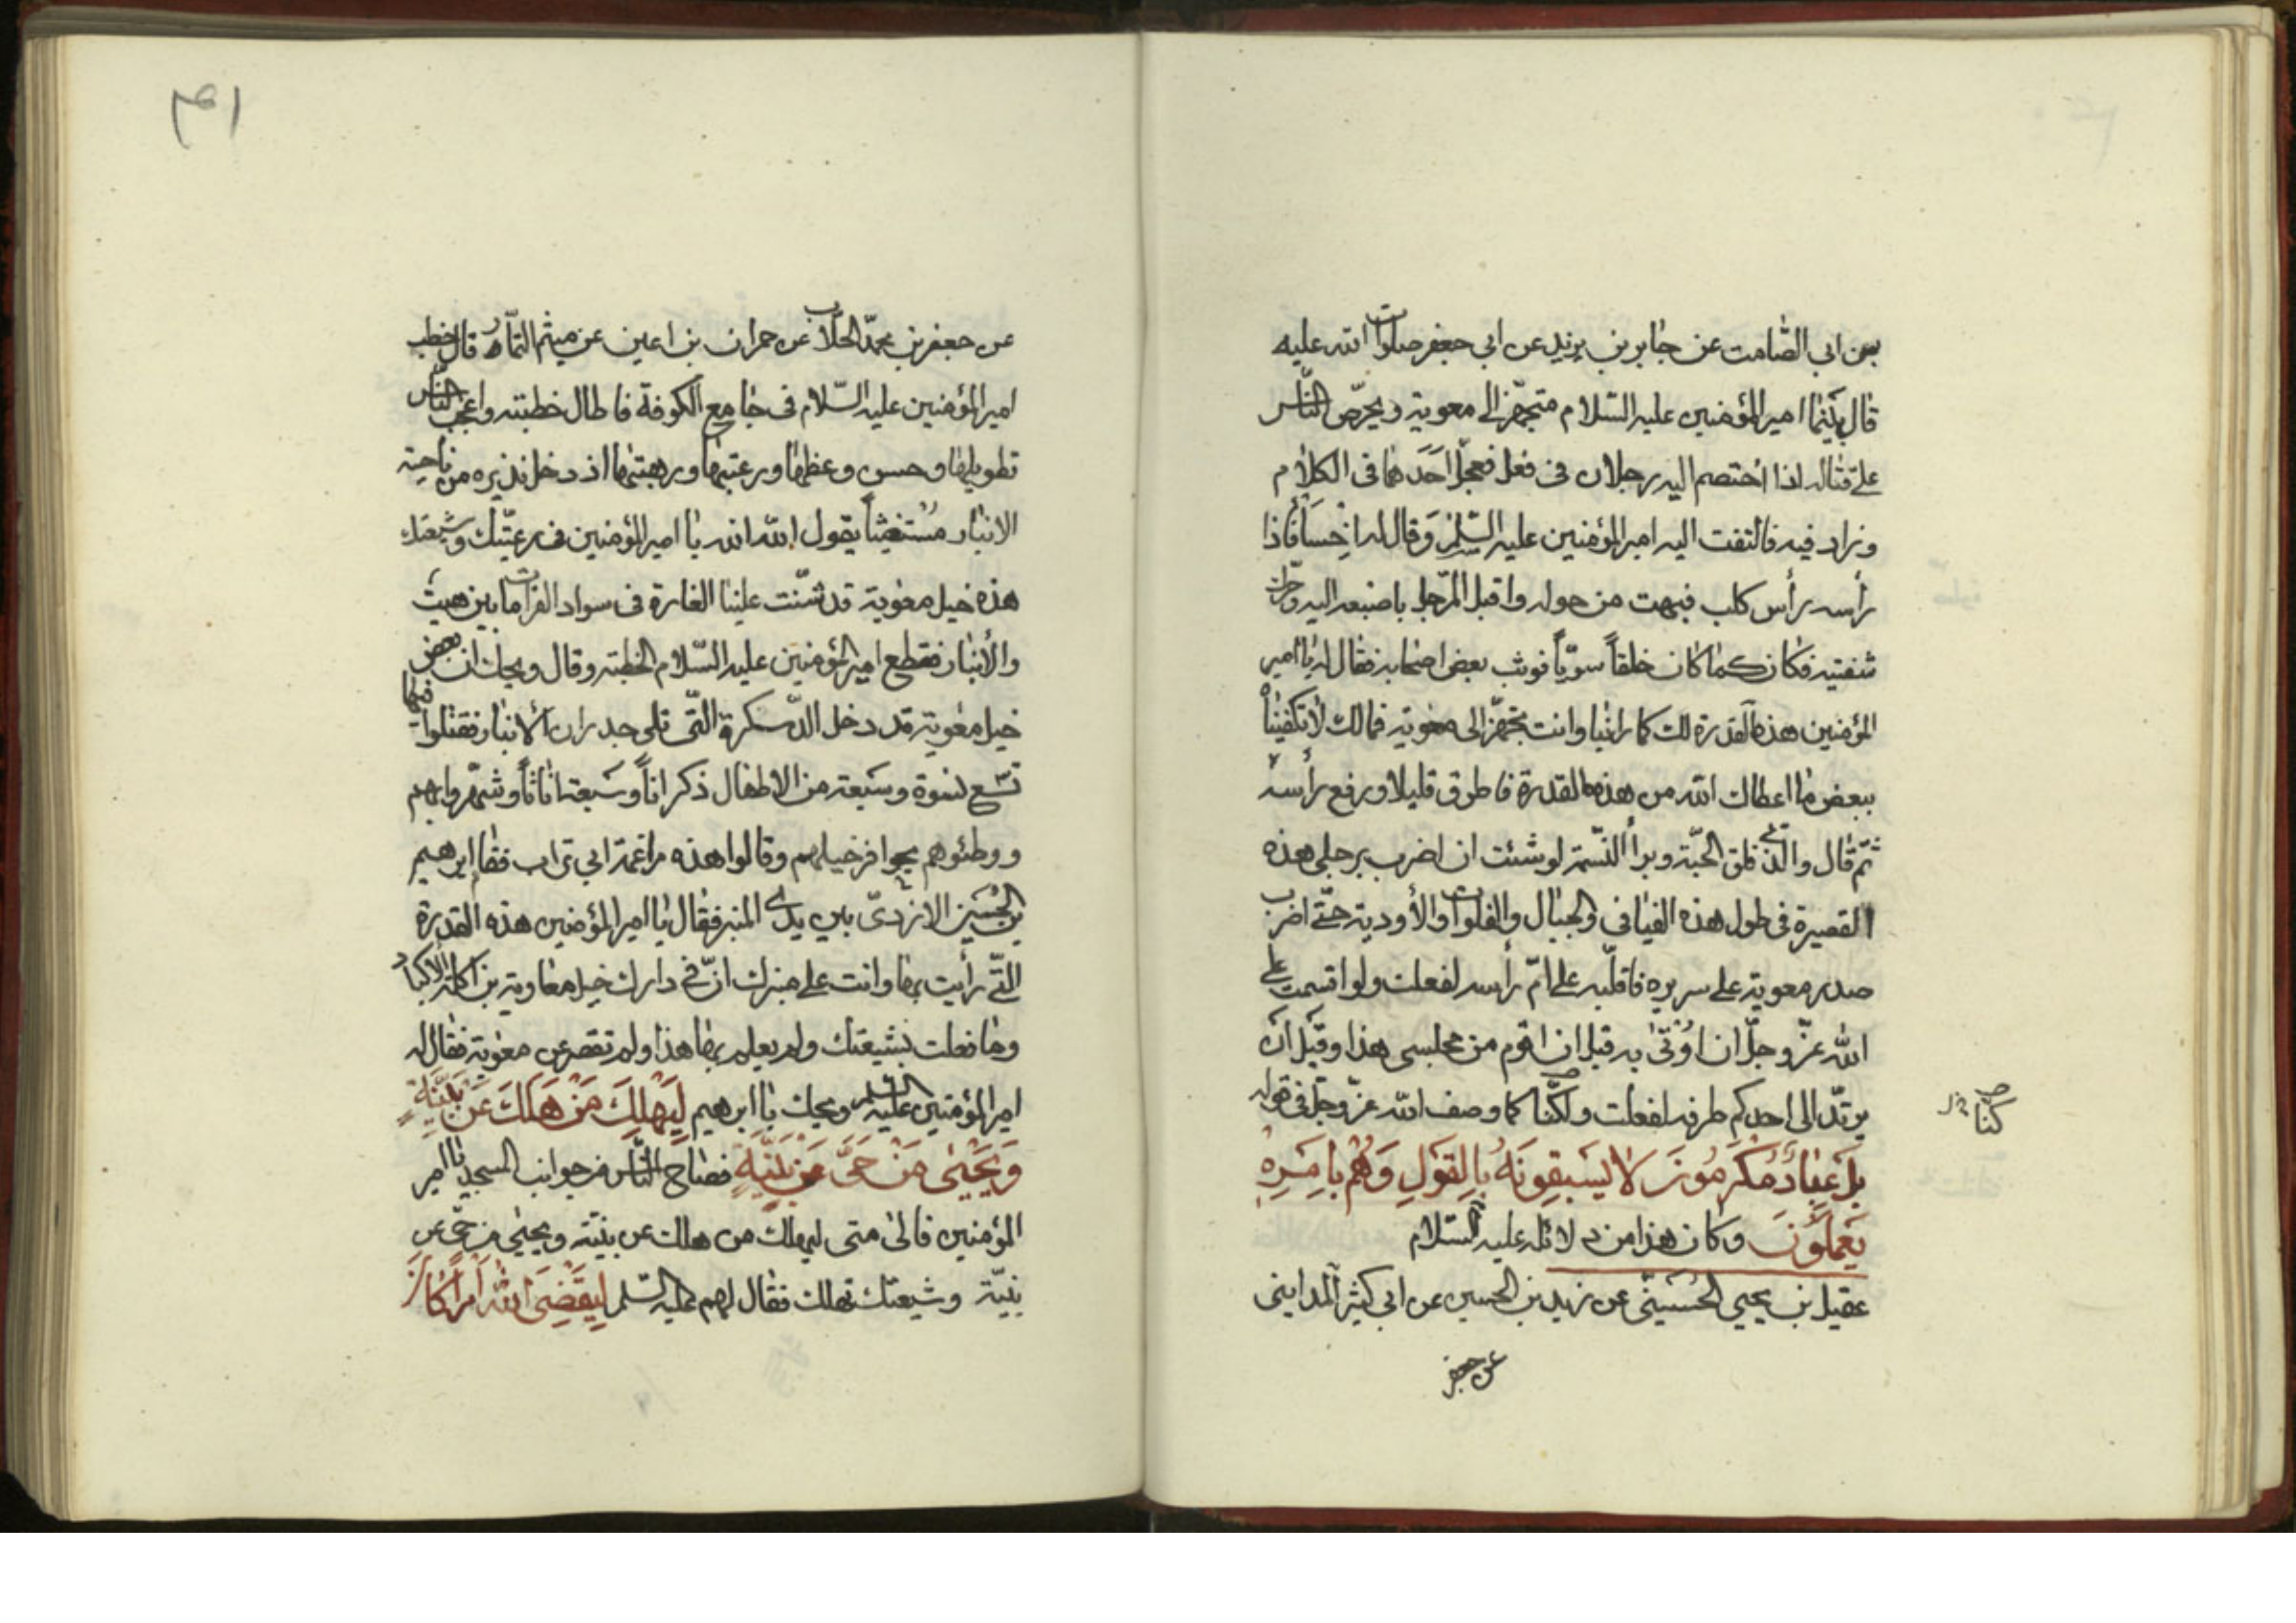 بن ابى الصّامت عن جابر بن يزيد عن ابى جعفر صلوات الله عليه
قال بينما امير المؤمنين عليه السّلام متجهّز الى معوية ويحرّص النّاس
على قتاله اذا اختصم اليه رجلان فى فعل فعجّل احَدَهما فى الكلام
وزاد فيه فالتفت اليه امير المؤمنين عليه السّلم وَقال له اخسَأ فاذا
رأسه رأس كلب فبهت من حوله واقبل الرّجل باصبعه اليه وحرّك
شفتيه فكان كما كان خلقاً سويّاً فوثب بعض اصحابه فقال له يا امير
المؤمنين هذه القدرة لك كما راينا وانت تجهّز الى معوية فمالك لا تكفيناه
ببعض ما اعطاك الله من هذه القدرة فاطرق قليلا ورفع رأسه
ثمّ قال والّذى فلق الحبّة وبرأ النّسمة لو شئت ان اضرب برجلى هذه
القصيرة فى طول هذه الفيافى والجبال والفلوات والأودية حتّى اضرب
صدر معوية على سريره فاقلّبه على امّ رأسه لفعلت ولو اقسمت على
الله عزّ وجلّ ان اوُتى به قبل ان اقوم من مجلسى هذا وقبل ان
يرتدّ الى احدكم طرفه لفعلت ولكنّا كما وصف الله عزّ وجلّ فى قوله
كنّا
بَل عِبادٌ مُكرَمُونَ لا يَسبِقُونَهُ بِالقَولِ وَهُم بِامَرِه
يَعمَلُونَ وكان هذا من دلائله عليه السّلام
عقيل بن يحيى الحُسَينىّ عن زيد بن الحسين عن ابى كثير المداينى
عن جعفر
عن جعفر بن محمّد الحلاب عن حمران بن اعين عن ميثم التمّار قال خطب
امير المؤمنين عليه السّلام فى جامع الكوفة فاطال خطبته واعجب النّاس
تطويلها وحسن وعظها ورغبتها ورهبتها اذ دخل نذيره من ناحية
الانبار مُستغيثاً يقول الله الله يا امير المؤمنين فى رعيّتك وشيعتك
هذه خيل معوية قد شنّت علينا الغارة فى سواد الفرات ما بين هيث
والأنبار فقطع امير المؤمنين عليه السّلام الخطبة وقال ويحك ان بعض
خيل معوية قد دخل الدّسكرة الّتى تلى جدران الانبار فقتلوا فيها
تسع نسوة وسَبعة من الاطفال ذكراناً وسَبعة اناثاً وشهّروا بهم
ووطئوهم بحوافر خيلهم وقالوا هذه مراغمة ابى تراب فقام ابرهيم
بن الحُسَين الازدىّ بين يدى المنبر فقال يا امير المؤمنين هذه القدرة
الّتى رأيت بها وانت على منبرك انّ فى دارك خيل معاوية بن اكلة الاكباد
وما فعلت بشيعتك ولم يعلم بها هذا ولم تقصر عن معوية فقال له
امير المؤمنين عليه السّلم ويحك يا ابرهيم لِيَهلِكَ مَنْ هَلَكَ عَن بَيِّنَةٍ
وَيَحيىٰ مَنْ حَىَّ عَن بَيِّنَةٍ فصاح النّاس من جوانب المسجد يا امير
المؤمنين فالى متى ليهلك من هلك عن بيّنة ويحيى من حىّ عن
بيّنة وشيعتك تهلك فقال لهم عليه السّلم لِيَقضِىَ اللهُ اَمراً كانَ